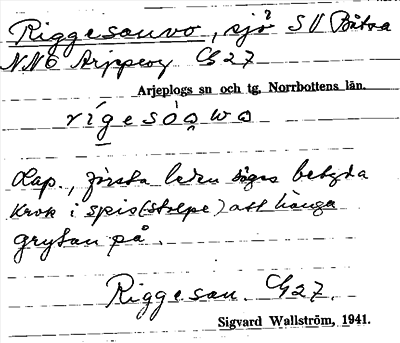 Riggesauvo, sjö? SV Båtsa
NNO Arjeploy C27
Arjeplogs sn och tg, Norrbottens län.
rígesó̀a̭wa
Lap., första leden säges betyda
Krok i spis(stolpe) att hänga
grytan på.
Riggesau. C27.
Sigvard Wallström, 1941.